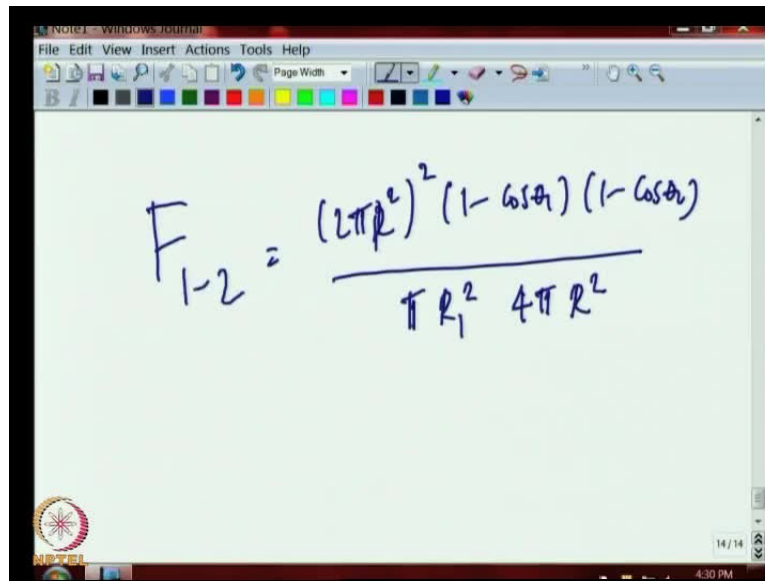 Note1 - Windows Journal
File Edit View Insert Actions Tools Help
Page Width
B I
F₁₋₂ = (2πR²)² (1 - cosθ₁) (1 - cosθ₂)
π R₁² 4π R²
NPTEL
14 / 14
4:30 PM